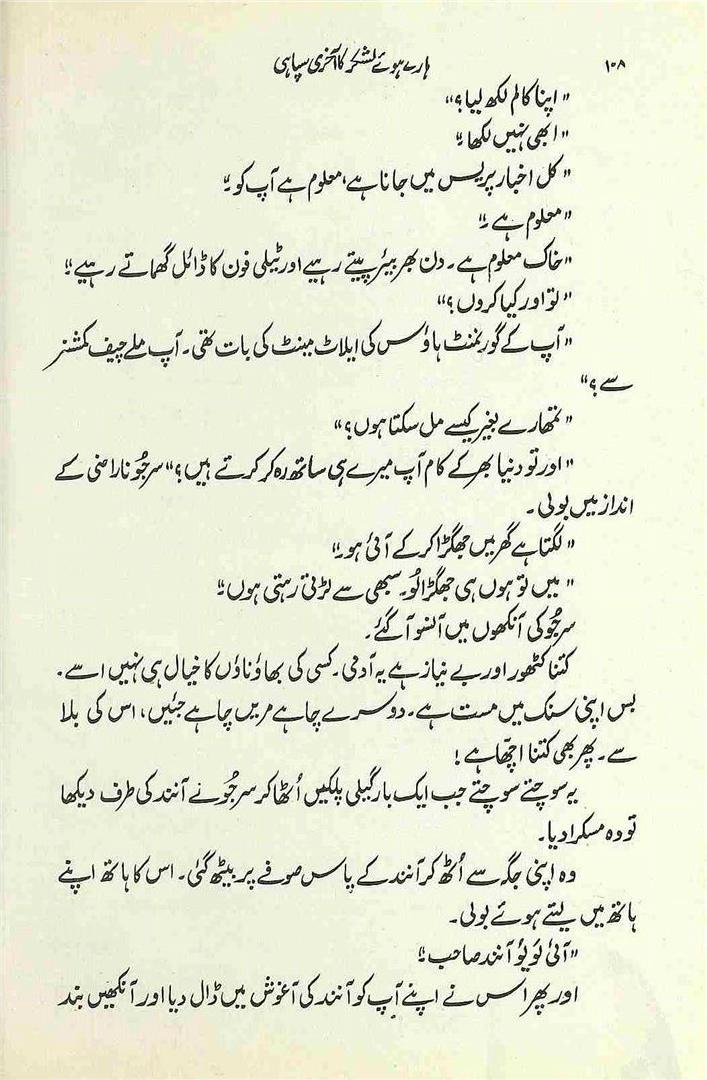 ۱۰۸ ہارے ہوئے لشکر کا آخری سپاہی
"اپنا کالم لکھ لیا؟"
"ابھی نہیں لکھا۔"
"کل اخبار پریس میں جانا ہے، معلوم ہے آپ کو۔"
"معلوم ہے۔"
"خاک معلوم ہے۔ دن بھر بیئر پیتے رہیے اور ٹیلی فون کا ڈائل گھماتے رہیے۔"
"تو اور کیا کروں؟"
"آپ کے گورنمنٹ ہاؤس کی ایلاٹ مینٹ کی بات تھی۔ آپ ملے چیف کمشنر
سے؟"
"تمھارے بغیر کیسے مل سکتا ہوں؟"
"اور تو دنیا بھر کے کام آپ میرے ہی ساتھ رہ کر کرتے ہیں؟" سرجُو ناراضی کے
انداز میں بولی۔
"لگتا ہے گھر میں جھگڑا کر کے آئی ہو۔"
"میں تو ہوں ہی جھگڑالُو۔ سبھی سے لڑتی رہتی ہوں۔"
سرجُو کی آنکھوں میں آنسو آ گئے۔
کتنا کٹھور اور بے نیاز ہے یہ آدمی۔ کسی کی بھاؤناؤں کا خیال ہی نہیں اسے۔
بس اپنی سنک میں مست ہے۔ دوسرے چاہے مریں چاہے جئیں، اس کی بلا
سے۔ پھر بھی کتنا اچھّا ہے!
یہ سوچتے سوچتے جب ایک بار گیلی پلکیں اُٹھا کر سرجُو نے آنند کی طرف دیکھا
تو وہ مسکرا دیا۔
وہ اپنی جگہ سے اُٹھ کر آنند کے پاس صوفے پر بیٹھ گئی۔ اس کا ہاتھ اپنے
ہاتھ میں لیتے ہوئے بولی۔
"آئی لَو یُو آنند صاحب۔"
اور پھر اس نے اپنے آپ کو آنند کی آغوش میں ڈال دیا اور آنکھیں بند